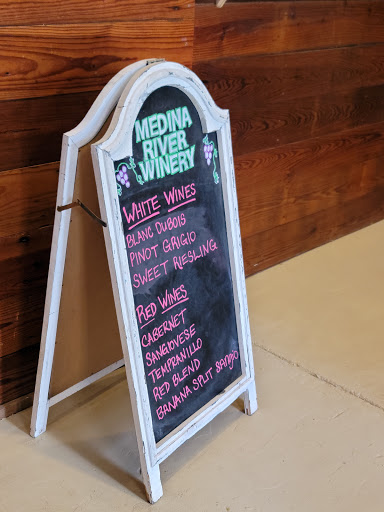 MEDINA
RIVER
WINERY
WHITE WINES
BLANC DUBOIS
PINOT GRIGIO
SWEET RIESLING
RED WINES
CABERNET
SANGIOVESE
TEMPRANILLO
RED BLEND
BANANA SPLIT SANGRIA